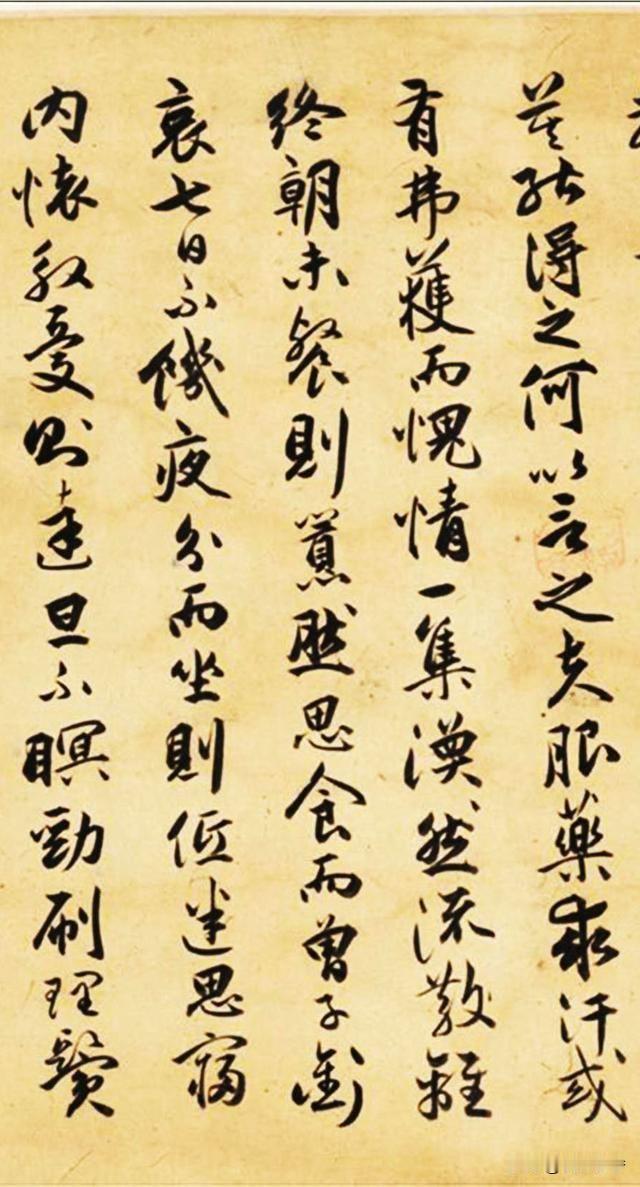 莫能得之何以言之夫服藥求汗或
有弗獲而愧情一集渙然流散離
終朝未餐則囂然思食而曾子銜
哀七日不饑夜分而坐則低迷思寢
內懷殷憂則達旦不瞑勁刷理鬢